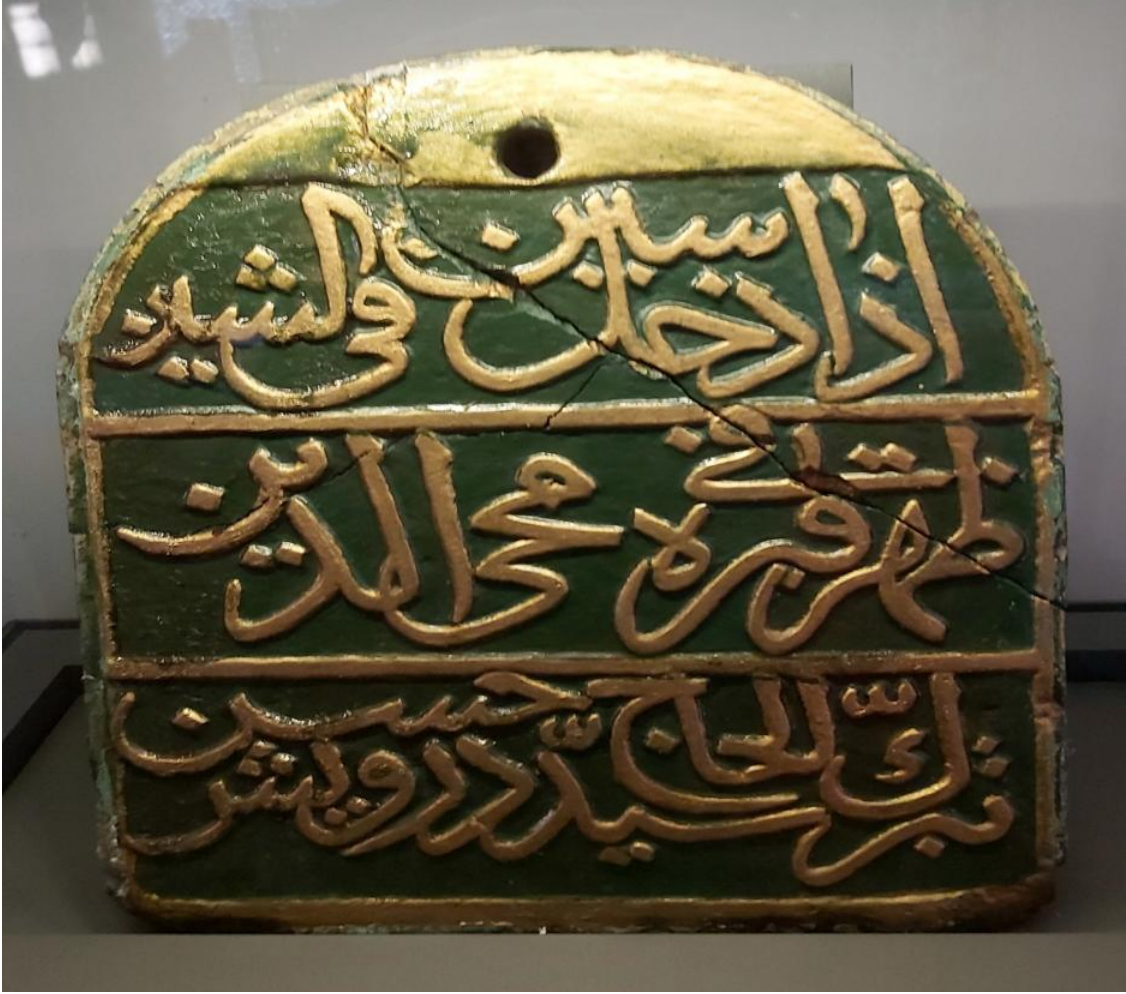 اذا دخل سين فى الشين
ظهر قبره محى الدين
الحاج سيد درويش حسين